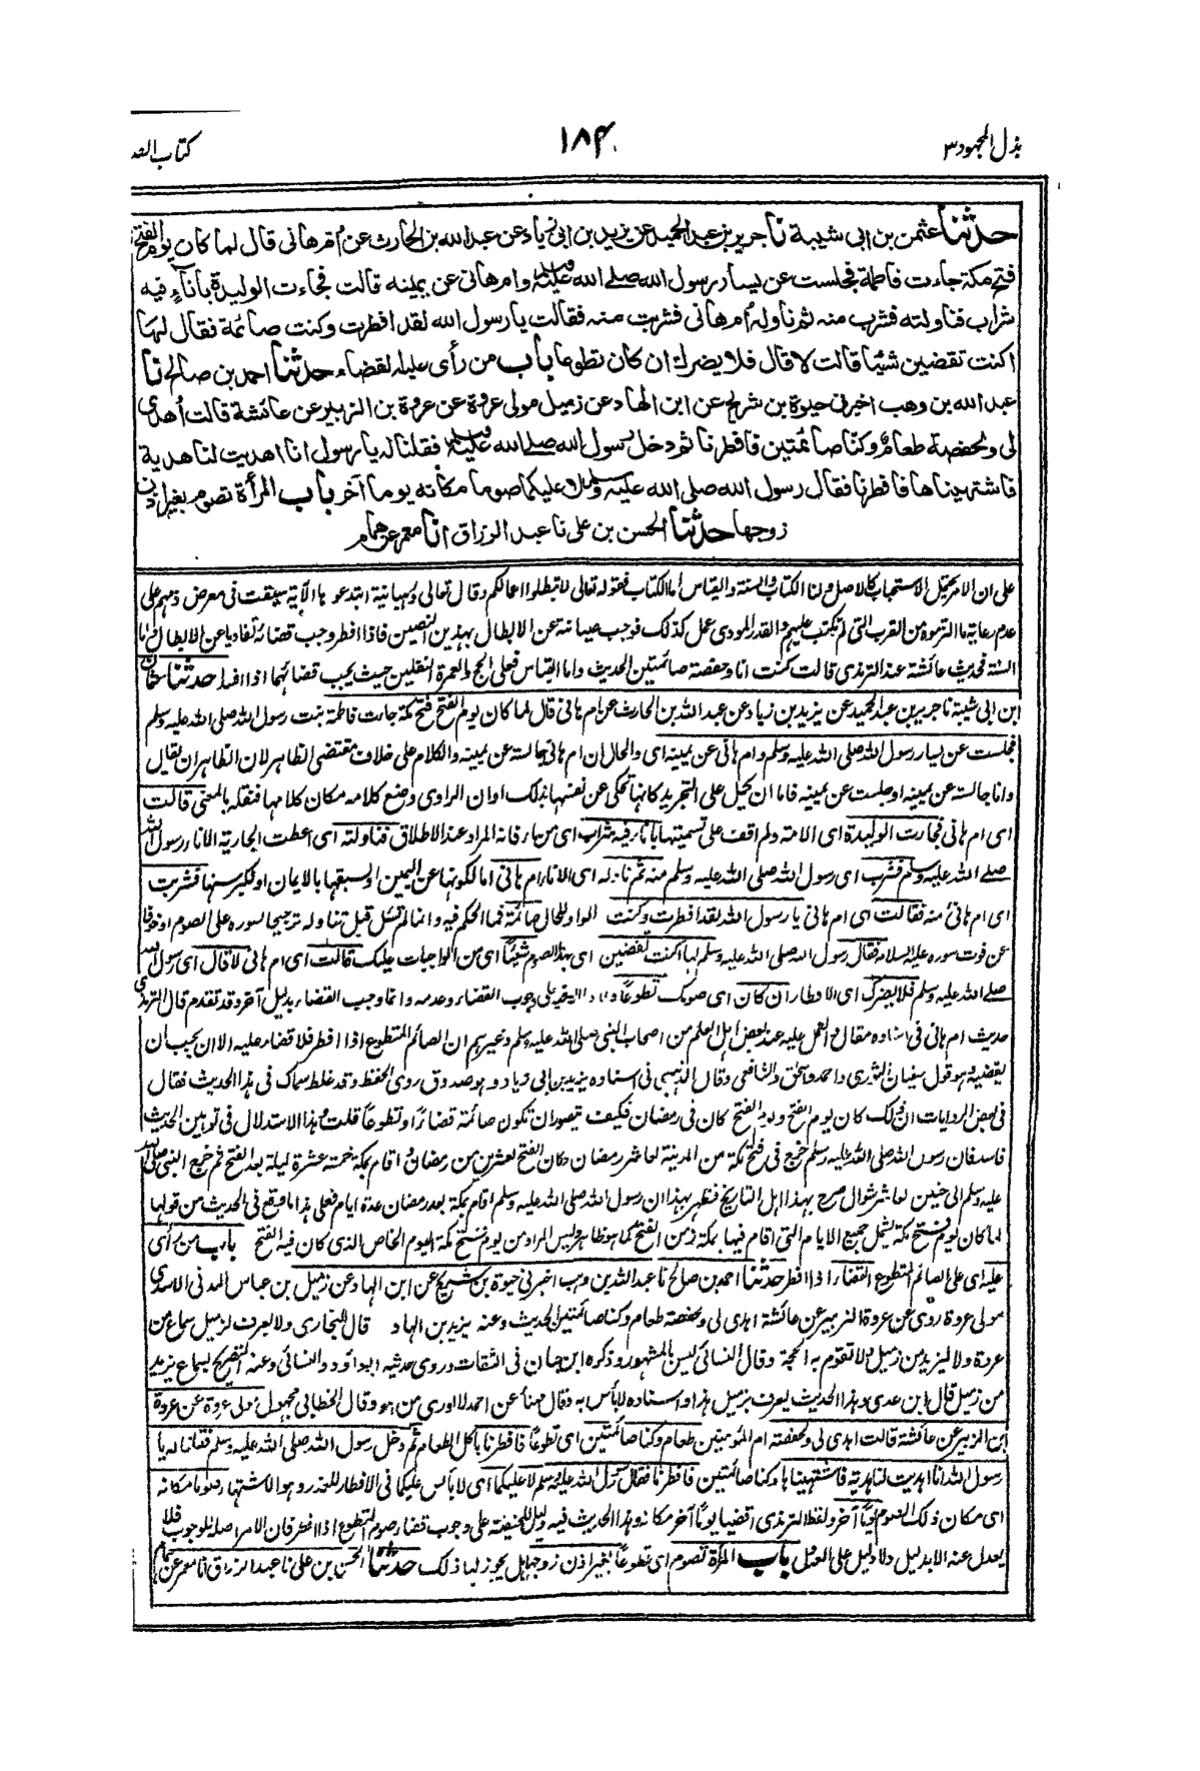 بذل المجهود ٣
١٨٤
كتاب الصـ
حدثنا عثمن بن ابى شيبة نا جرير بن عبد الحميد عن يزيد بن ابى زياد عن عبد الله بن الحارث عن ام هانى قال لما كان يوم الفتح
فتح مكة جاءت فاطمة فجلست عن يسار رسول الله صلى الله عليه وسلم وام هانى عن يمينه قالت فجاءت الوليدة باناء فيه
شراب فناولته فشرب منه ثم ناوله ام هانى فشربت منه فقالت يا رسول الله لقد افطرت وكنت صائمة فقال لها
اكنت تقضين شيئا قالت لا قال فلا يضرك ان كان تطوعا باب من رأى عليه القضاء حدثنا احمد بن صالح نا
عبد الله بن وهب اخبرنى حيوة بن شريح عن ابن الهاد عن زميل مولى عروة عن عروة بن الزبير عن عائشة قالت اهدى
لى ولحفصة طعام وكنا صائمتين فافطرنا ثم دخل رسول الله صلى الله عليه وسلم فقلنا له يا رسول انا اهديت لنا هدية
فاشتهيناها فافطرنا فقال رسول الله صلى الله عليه وسلم لا عليكما صوما مكانه يوما آخر باب المرأة تصوم بغير اذن
زوجها حدثنا الحسن بن على نا عبد الرزاق انا معمر عن همام
على ان الامر يحتمل الاستحباب كالاصل ولنا الكتاب والسنة والقياس اما الكتاب فقوله تعالى لا تبطلوا اعمالكم وقال تعالى ورهبانية ابتدعوها الآية سيقت فى معرض ذمهم على
عدم رعاية ما التزموه من القرب التى لم تكتب عليهم والقدر المودى عمل كذلك فوجب صيانته عن الابطال بهذين النصين فاذا افطر وجب قضائه تفاديا عن الابطال واما
السنة فحديث عائشة عند الترمذى قالت كنت انا وحفصة صائمتين الحديث واما القياس فعلى الحج والعمرة النفلين حيث يجب قضائهما اذا افسدا حدثنا عثمان
ابن ابى شيبة نا جرير بن عبد الحميد عن يزيد بن زياد عن عبد الله بن الحارث عن ام هانى قال لما كان يوم الفتح فتح مكة جاءت فاطمة بنت رسول الله صلى الله عليه وسلم
فجلست عن يسار رسول الله صلى الله عليه وسلم وام هانى عن يمينه اى والحال ان ام هانى جالسة عن يمينه والكلام على خلاف مقتضى الظاهر لان الظاهر ان يقال
وانا جالسة عن يمينه او جلست عن يمينه فاما ان يحمل على التجريد كانها تحكى عن نفسها بذلك او ان الراوى وضع كلامه مكان كلامها فنقله بالمعنى قالت
اى ام هانى فجاءت الوليدة اى الامة ولم اقف على تسميتها باناء فيه شراب اى من ماء فانه المراد عند الاطلاق فناولته اى اعطت الجارية الاناء رسول الله
صلى الله عليه وسلم فشرب اى رسول الله صلى الله عليه وسلم منه ثم ناوله اى الاناء ام هانى اما لكونها عن اليمين او لسبقها بالايمان او لكبر سنها فشربت
اى ام هانى منه فقالت اى ام هانى يا رسول الله لقد افطرت وكنت الواو للحال صائمة فما الحكم فيه وانما لم تسئل قبل تناوله ترجيحا لسوره على الصوم او خوفا
عن فوت سوره عليه السلام فقال رسول الله صلى الله عليه وسلم لها اكنت تقضين اى بهذا الصوم شيئا اى من الواجبات عليك قالت اى ام هانى لا قال اى رسول الله
صلى الله عليه وسلم فلا يضرك اى الافطار ان كان اى صومك تطوعا وجوب القضاء وعدمه وانما وجب القضاء بدليل آخر وقد تقدم قال الترمذى
حديث ام هانى فى اسناده مقال والعمل عليه عند بعض اهل العلم من اصحاب النبى صلى الله عليه وسلم وغيرهم ان الصائم المتطوع اذا افطر فلا قضاء عليه الا ان يحب ان
يقضيه وهو قول سفيان الثورى واحمد واسحق والشافعى وقال الذهبى فى اسناده يزيد بن ابى زياد وهو صدوق ردى الحفظ وقد غلط سماك فى هذا الحديث فقال
فى بعض الروايات ان ذلك كان يوم الفتح ويوم الفتح كان فى رمضان فكيف يتصور ان تكون صائمة قضاء او تطوعا قلت وهذا الاستدلال فى توهين الحديث
فاسد فان رسول الله صلى الله عليه وسلم خرج فى فتح مكة من المدينة لعاشر رمضان وكان الفتح لعشرين من رمضان واقام بمكة خمسة عشرة ليلة بعد الفتح ثم خرج النبى صلى الله
عليه وسلم الى حنين لعاشر شوال صرح بهذا اهل التاريخ فظهر بهذا ان رسول الله صلى الله عليه وسلم اقام بمكة بعد رمضان عدة ايام فعلى هذا ما وقع فى الحديث من قولها
لما كان يوم فتح مكة يشمل جميع الايام التى اقام فيها بمكة زمن الفتح كما هو ظاهر وليس المراد من يوم فتح مكة اليوم الخاص الذى كان فيه الفتح باب من رأى
عليه اى على الصائم المتطوع القضاء اذا افطر حدثنا احمد بن صالح نا عبد الله بن وهب اخبرنى حيوة بن شريح عن ابن الهاد عن زميل بن عباس المدنى الاسدى
مولى عروة روى عن عروة الزبير عن عائشة اهدى لى ولحفصة طعام وكنا صائمتين الحديث وعنه يزيد بن الهاد قال البخارى ولا يعرف لزميل سماع من
عروة ولا ليزيد من زميل ولا تقوم به الحجة وقال النسائى ليس بالمشهور وذكره ابن حبان فى الثقات وروى حديثه ابو داود والنسائى وعنه التصريح بسماع يزيد
من زميل قال ابن عدى وهذا الحديث يعرف بزميل هذا واسناده لا بأس به وقال مهنأ عن احمد لا ادرى من هو وقال الخطابى مجهول مولى عروة عن عروة
ابن الزبير عن عائشة قالت اهدى لى ولحفصة ام المؤمنين طعام وكنا صائمتين اى تطوعا فافطرنا باكل الطعام ثم دخل رسول الله صلى الله عليه وسلم فقلنا له يا
رسول الله انا اهديت لنا هدية فاشتهيناها وكنا صائمتين فافطرنا فقال رسول الله صلى الله عليه وسلم لا عليكما اى لا بأس عليكما فى الافطار للعذر وهو الاشتهاء صوما مكانه
اى مكان ذلك الصوم يوما آخر ولفظ الترمذى اقضيا يوما آخر مكانه وهذا الحديث فيه دليل للحنفية على وجوب قضاء صوم التطوع اذا افطر فان الامر اصله للوجوب فلا
يعدل عنه الا بدليل ولا دليل على العدول باب المرأة تصوم اى تطوعا بغير اذن زوجها هل يجوز لها ذلك حدثنا الحسن بن على نا عبد الرزاق انا معمر عن همام